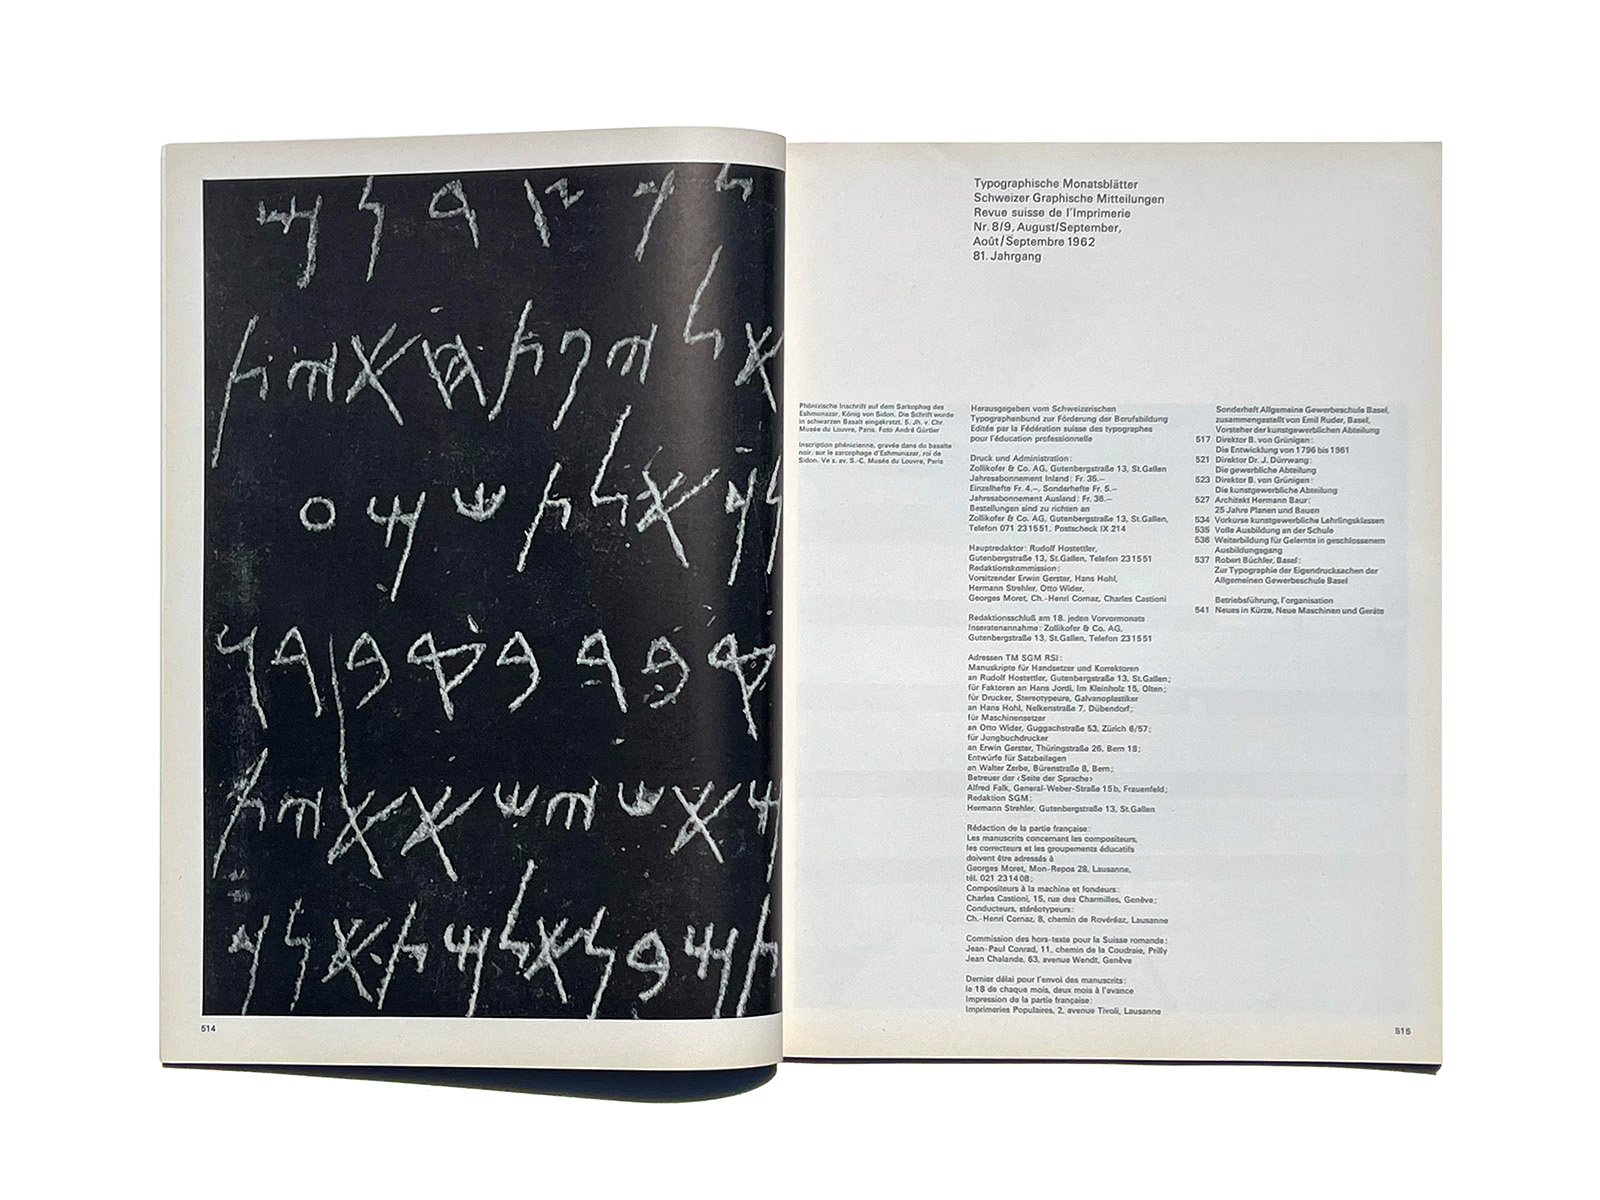 514
Typographische Monatsblätter
Schweizer Graphische Mitteilungen
Revue suisse de l'Imprimerie
Nr. 8/9, August/September,
Août/Septembre 1962
81. Jahrgang
Phönizische Inschrift auf dem Sarkophag des
Eshmunazar, König von Sidon. Die Schrift wurde
in schwarzen Basalt eingekratzt. 5. Jh. v. Chr.
Musée du Louvre, Paris. Foto André Gürtler
Inscription phénicienne, gravée dans du basalte
noir, sur le sarcophage d'Eshmunazar, roi de
Sidon. Ve s. av. J.-C. Musée du Louvre, Paris
Herausgegeben vom Schweizerischen
Typographenbund zur Förderung der Berufsbildung
Editée par la Fédération suisse des typographes
pour l'éducation professionnelle
Druck und Administration:
Zollikofer & Co. AG, Gutenbergstraße 13, St.Gallen
Jahresabonnement Inland: Fr. 35.–
Einzelhefte Fr. 4.–, Sonderhefte Fr. 5.–
Jahresabonnement Ausland: Fr. 36.–
Bestellungen sind zu richten an
Zollikofer & Co. AG, Gutenbergstraße 13, St.Gallen,
Telefon 071 231551, Postscheck IX 214
Hauptredaktor: Rudolf Hostettler,
Gutenbergstraße 13, St.Gallen, Telefon 231551
Redaktionskommission:
Vorsitzender Erwin Gerster, Hans Hohl,
Hermann Strehler, Otto Wider,
Georges Moret, Ch.-Henri Cornaz, Charles Castioni
Redaktionsschluß am 18. jeden Vorvormonats
Inseratenannahme: Zollikofer & Co. AG,
Gutenbergstraße 13, St.Gallen, Telefon 231551
Adressen TM SGM RSI:
Manuskripte für Handsetzer und Korrektoren
an Rudolf Hostettler, Gutenbergstraße 13, St.Gallen;
für Faktoren an Hans Jordi, Im Kleinholz 15, Olten;
für Drucker, Stereotypeure, Galvanoplastiker
an Hans Hohl, Nelkenstraße 7, Dübendorf;
für Maschinensetzer
an Otto Wider, Guggachstraße 53, Zürich 6/57;
für Jungbuchdrucker
an Erwin Gerster, Thüringstraße 26, Bern 18;
Entwürfe für Satzbeilagen
an Walter Zerbe, Bürenstraße 8, Bern;
Betreuer der ‹Seite der Sprache›
Alfred Falk, General-Weber-Straße 15b, Frauenfeld;
Redaktion SGM:
Hermann Strehler, Gutenbergstraße 13, St.Gallen
Rédaction de la partie française:
Les manuscrits concernant les compositeurs,
les correcteurs et les groupements éducatifs
doivent être adressés à
Georges Moret, Mon-Repos 28, Lausanne,
tél. 021 231408;
Compositeurs à la machine et fondeurs:
Charles Castioni, 15, rue des Charmilles, Genève;
Conducteurs, stéréotypeurs:
Ch.-Henri Cornaz, 8, chemin de Rovéréaz, Lausanne
Commission des hors-texte pour la Suisse romande:
Jean-Paul Conrad, 11, chemin de la Coudraie, Prilly
Jean Chalande, 63, avenue Wendt, Genève
Dernier délai pour l'envoi des manuscrits:
le 18 de chaque mois, deux mois à l'avance
Impression de la partie française:
Imprimeries Populaires, 2, avenue Tivoli, Lausanne
Sonderheft Allgemeine Gewerbeschule Basel,
zusammengestellt von Emil Ruder, Basel,
Vorsteher der kunstgewerblichen Abteilung
517 Direktor B. von Grünigen:
Die Entwicklung von 1796 bis 1961
521 Direktor Dr. J. Dürrwang:
Die gewerbliche Abteilung
523 Direktor B. von Grünigen:
Die kunstgewerbliche Abteilung
527 Architekt Hermann Baur:
25 Jahre Planen und Bauen
534 Vorkurse kunstgewerbliche Lehrlingsklassen
535 Volle Ausbildung an der Schule
536 Weiterbildung für Gelernte in geschlossenem
Ausbildungsgang
537 Robert Büchler, Basel:
Zur Typographie der Eigendrucksachen der
Allgemeinen Gewerbeschule Basel
Betriebsführung, l'organisation
541 Neues in Kürze, Neue Maschinen und Geräte
515